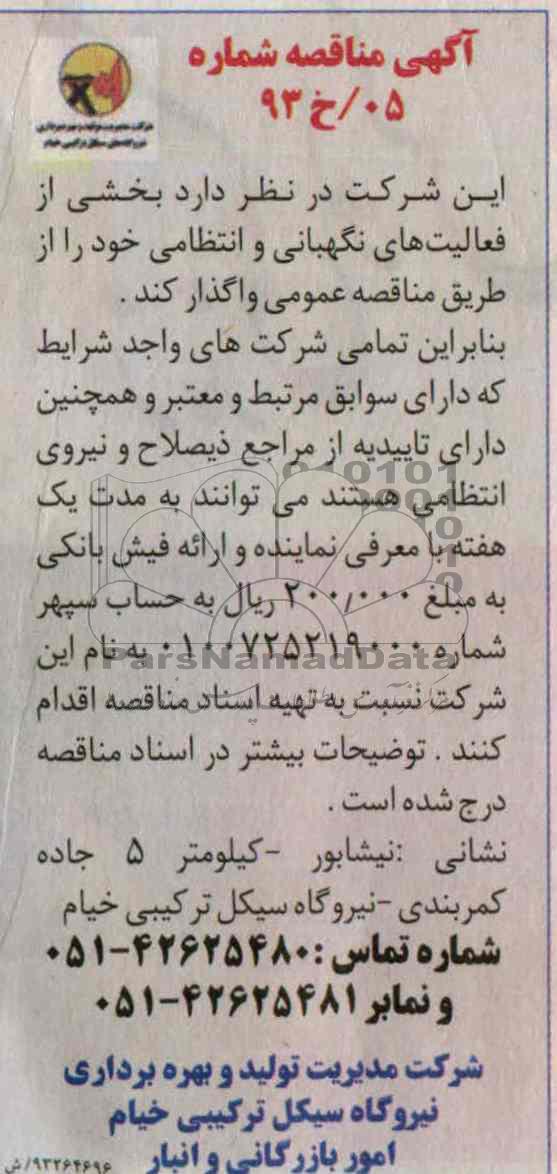 آگهی مناقصه شماره
۰۵/خ ۹۳
شرکت مدیریت تولید و بهره برداری
نیروگاه‌های سیکل ترکیبی خیام
ایـن شـرکت در نـظر دارد بخشی از
فعالیت‌های نگهبانی و انتظامی خود را از
طریق مناقصه عمومی واگذار کند .
بنابراین تمامی شرکت های واجد شرایط
که دارای سوابق مرتبط و معتبر و همچنین
دارای تاییدیه از مراجع ذیصلاح و نیروی
انتظامی هستند می توانند به مدت یک
هفته با معرفی نماینده و ارائه فیش بانکی
به مبلغ ۲۰۰٫۰۰۰ ریال به حساب سپهر
شماره ۰۱۰۰۷۲۵۲۱۹۰۰۰ به نام این
شرکت نسبت به تهیه اسناد مناقصه اقدام
کنند . توضیحات بیشتر در اسناد مناقصه
درج شده است .
نشانی :نیشابور -کیلومتر ۵ جاده
کمربندی -نیروگاه سیکل ترکیبی خیام
شماره تماس :۴۲۶۲۵۴۸۰-۰۵۱
و نمابر ۴۲۶۲۵۴۸۱-۰۵۱
شرکت مدیریت تولید و بهره برداری
نیروگاه سیکل ترکیبی خیام
امور بازرگانی و انبار
۹۳۲۶۴۶۹۶/ش
ParsNamadData